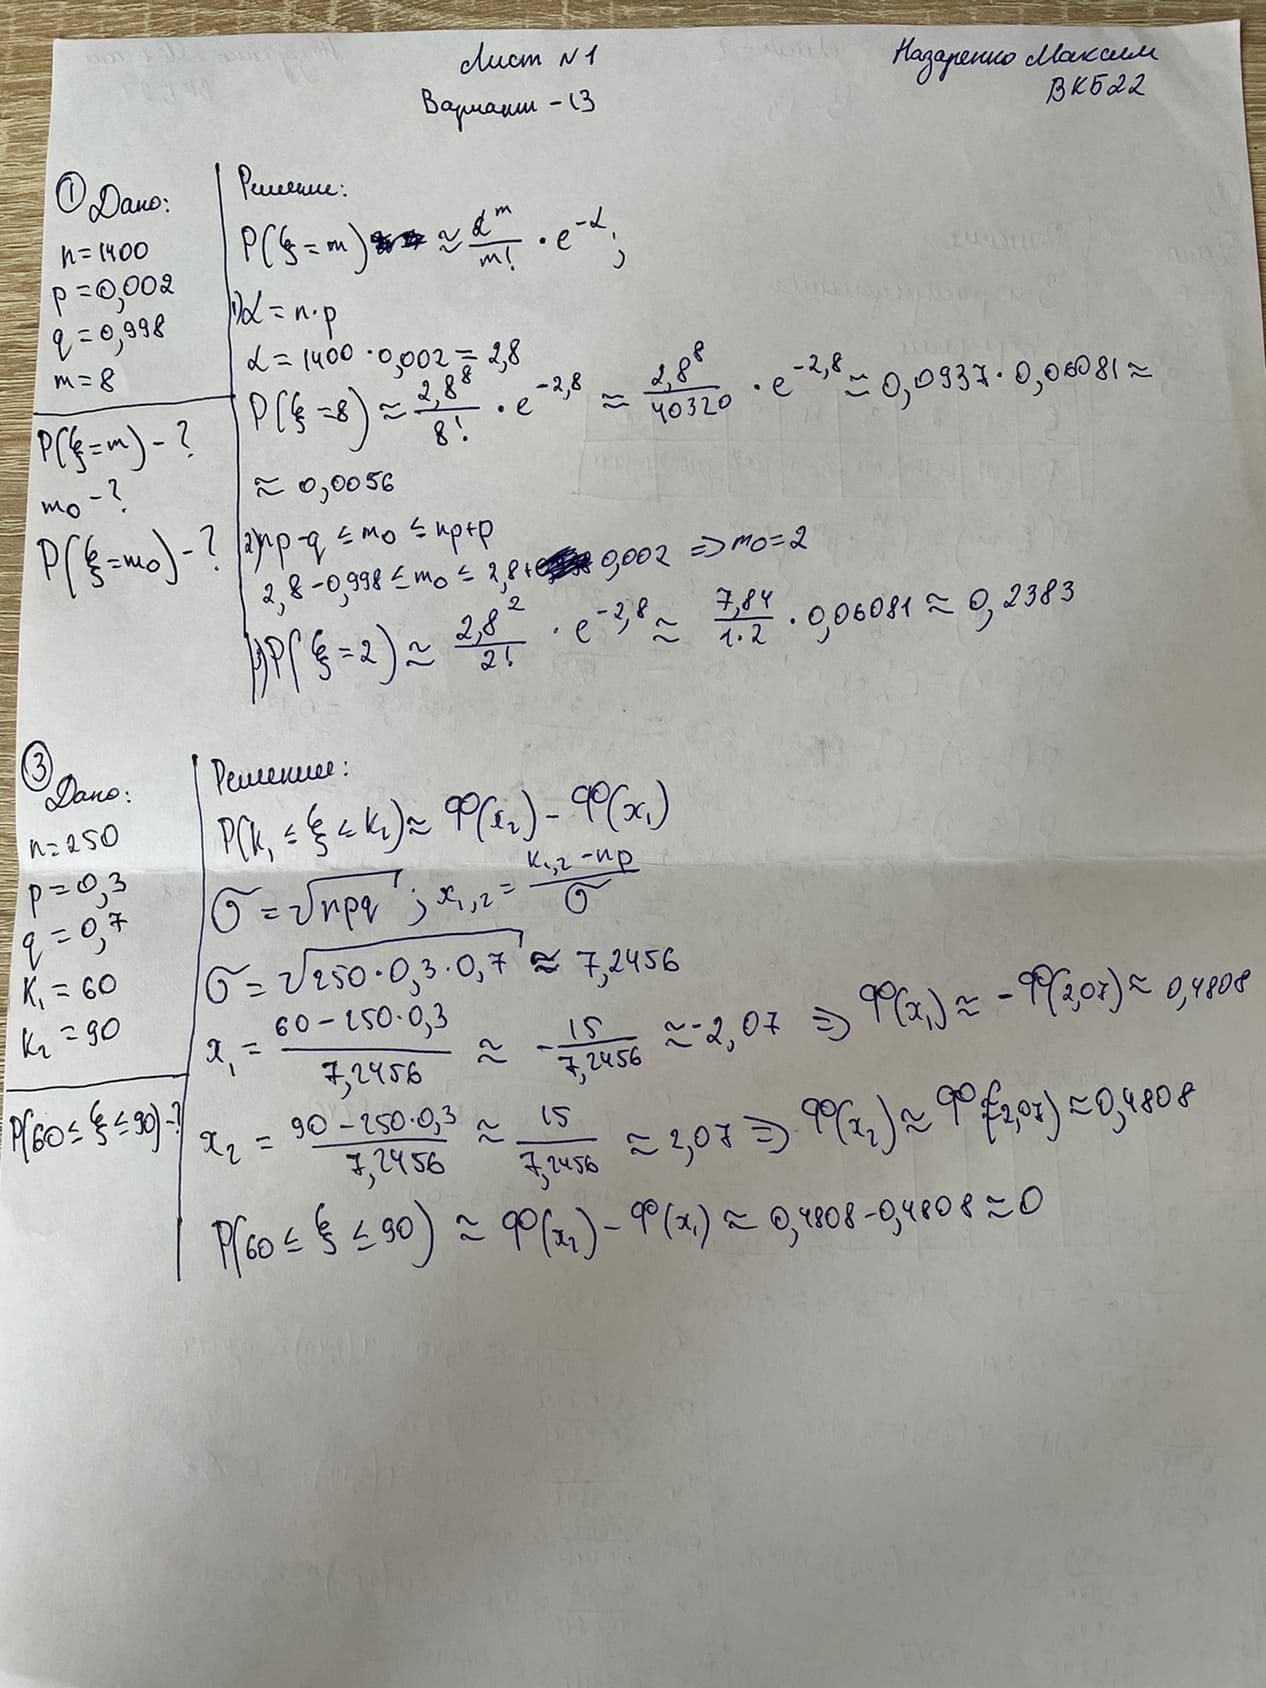 Лист N1
Назаренко Максим
Вариант - 13
ВКБ22
① Дано:
n=1400
p=0,002
q=0,998
m=8
P(ξ=m) - ?
m₀ - ?
P(ξ=m₀) - ?
Решение:
P(ξ=m) ≈ α^m/m! · e^-α;
1) α = n·p
α = 1400 · 0,002 = 2,8
P(ξ=8) ≈ 2,8^8/8! · e^-2,8 ≈ 2,8^8/40320 · e^-2,8 ≈ 0,0937 · 0,06081 ≈
≈ 0,0056
2) np-q ≤ m₀ ≤ np+p
2,8-0,998 ≤ m₀ ≤ 2,8+0,002 ⇒ m₀=2
3) P(ξ=2) ≈ 2,8^2/2! · e^-2,8 ≈ 7,84/1·2 · 0,06081 ≈ 0,2383
③ Дано:
n=250
p=0,3
q=0,7
K₁=60
K₂=90
P(60≤ξ≤90)-?
Решение:
P(K₁ ≤ ξ ≤ K₂) ≈ Φ(x₂) - Φ(x₁)
σ = √npq ; x₁,₂ = K₁,₂-np/σ
σ = √250·0,3·0,7 ≈ 7,2456
x₁ = 60-250·0,3/7,2456 ≈ -15/7,2456 ≈ -2,07 ⇒ Φ(x₁) ≈ -Φ(2,07) ≈ 0,4808
x₂ = 90-250·0,3/7,2456 ≈ 15/7,2456 ≈ 2,07 ⇒ Φ(x₂) ≈ Φ(2,07) ≈ 0,4808
P(60 ≤ ξ ≤ 90) ≈ Φ(x₂) - Φ(x₁) ≈ 0,4808-0,4808 ≈ 0